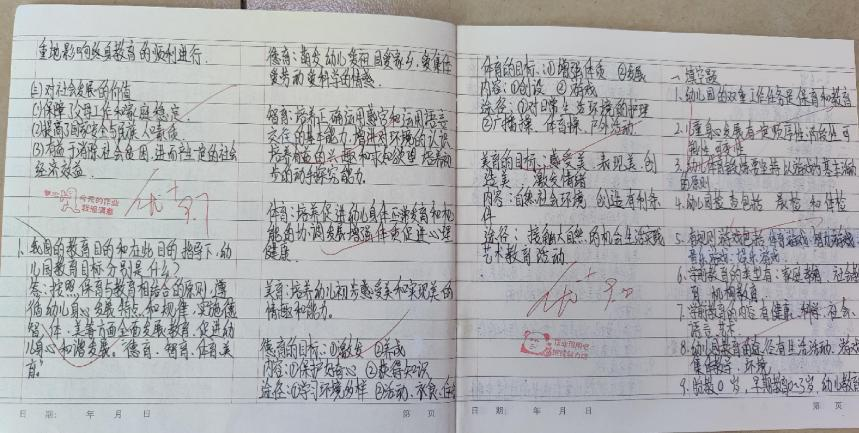 重地影响终身教育的顺利进行.
(三)对社会发展的价值
(1)保障了父母工作和家庭稳定.
(2)提高了国家安全与民族人口素质
(3)有益于消除社会贫困,进而产生一定的社会
经济效益.
今天的作业
我很满意
优+ 9.7
1、我国的教育目的和在此目的指导下,幼
儿园教育目标分别是什么?
答:按照保育与教育相结合的原则,遵
循幼儿身心发展特点和规律,实施德
智、体、美等方面全面发展教育,促进幼
儿身心和谐发展。"德育、智育、体育、美
育."
日 期: 年 月 日
德育:萌发幼儿爱祖国爱家乡、爱集体
爱劳动爱科学的情感.
智育:培养正确运用感官和运用语言
交往的基本能力,增进对环境的认识
培养有益的兴趣和求知欲望 培养初
步的动手探究能力.
体育:培养促进幼儿身体正常发育和机
能的协调发展增强体质促进心理
健康
美育:培养幼儿初步感受美和表现美的
情趣和能力。
德育的目标:①激发 ②养成
内容:①保护好奇心 ②获得知识
途径:①学习环境 ②活动、衣食、
第 页
体育的目标:①增强体质 ②发展
内容:①创设 ②游戏
途径:①对日常生活环境的护理
②广播操、体育操、户外活动.
美育的目标:感受美、表现美,创
造美、激发情绪
内容:自然社会环境,创造有利条
件
途径:接触大自然的机会生活实践
艺术教育活动
优+ 9.20
日 期: 年 月 日
一 填空题
1、幼儿园的双重工作任务是保育和教育
2、儿童身心发展有定顺序性,阶段性,可
3、幼儿体育锻炼要坚持以游戏为基本活动
的原则
4、幼儿园检查包括 晨检 和体检
5、有规则游戏包括体育游戏,智力游戏
音乐游戏,娱乐游戏.
6、学前教育的类型有:家庭教育,社会教
育,机构教育.
7、学前教育的内容有健康、科学、社会、
语言,艺术
8、幼儿园教育的途径有生活活动,游戏
集体教学,环境
9、胎教0岁,早期教育0~3岁,幼儿教育
第 页